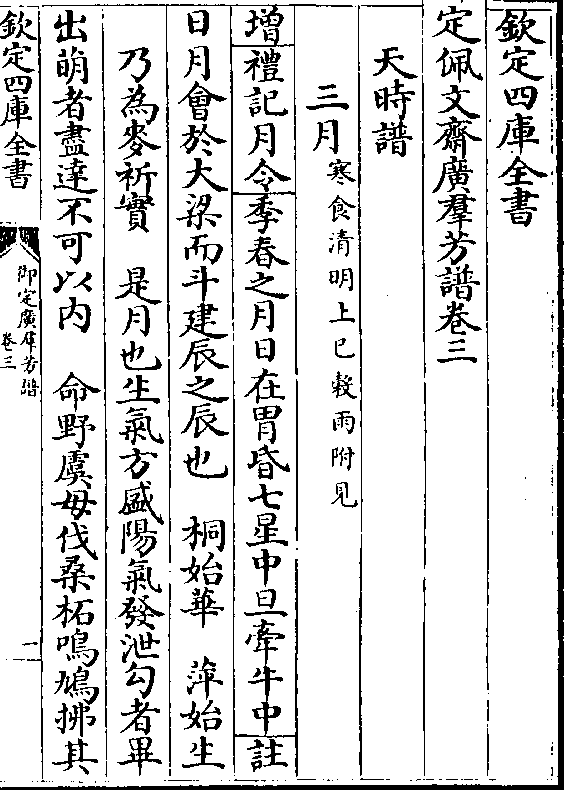 欽定四庫全書
定佩文齋廣羣芳譜卷三
天時譜
三月寒食清明上巳穀雨附見
增禮記月令季春之月日在胃昏七星中旦牽牛中註
日月會於大梁而斗建辰之辰也 桐始華 萍始生
乃為麥祈實 是月也生氣方盛陽氣發泄勾者畢
出萌者盡達不可以内 命野虞毋伐桑柘鳴鳩拂其
欽定四庫全書
御定廣羣芳譜
卷三
一